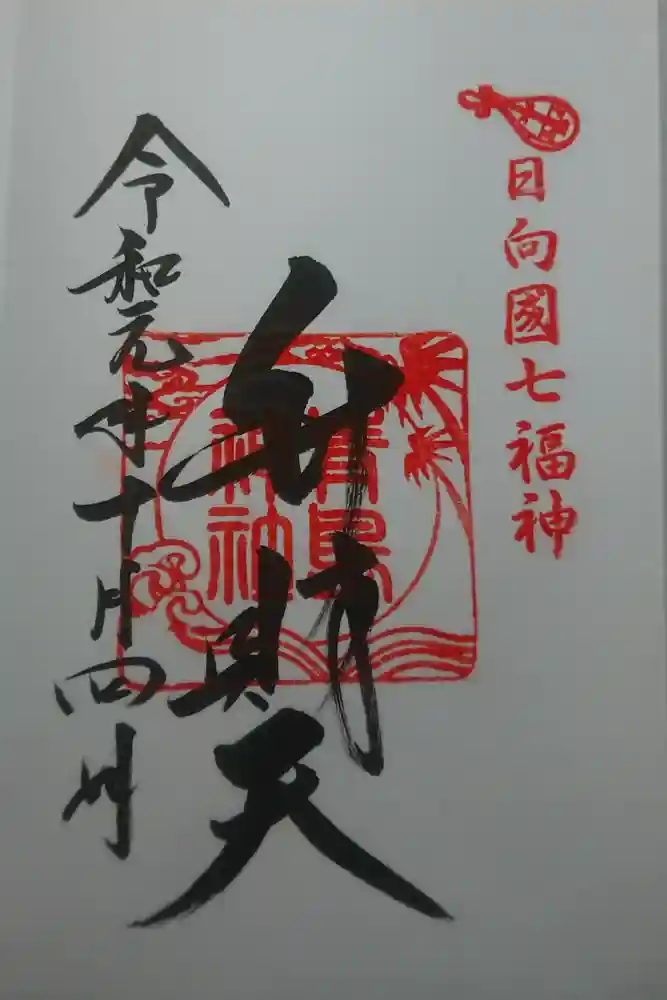 日向國七福神
弁財天
青島神社
令和元年十月四日